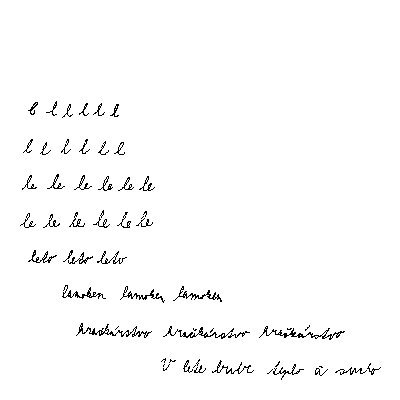 l l l l l l
l l l l l l
le le le le le le
le le le le le le
leto leto leto
lamohen lamohen lamohen
hračkárstvo hračkárstvo hračkárstvo
V lete bube teplo a sucho